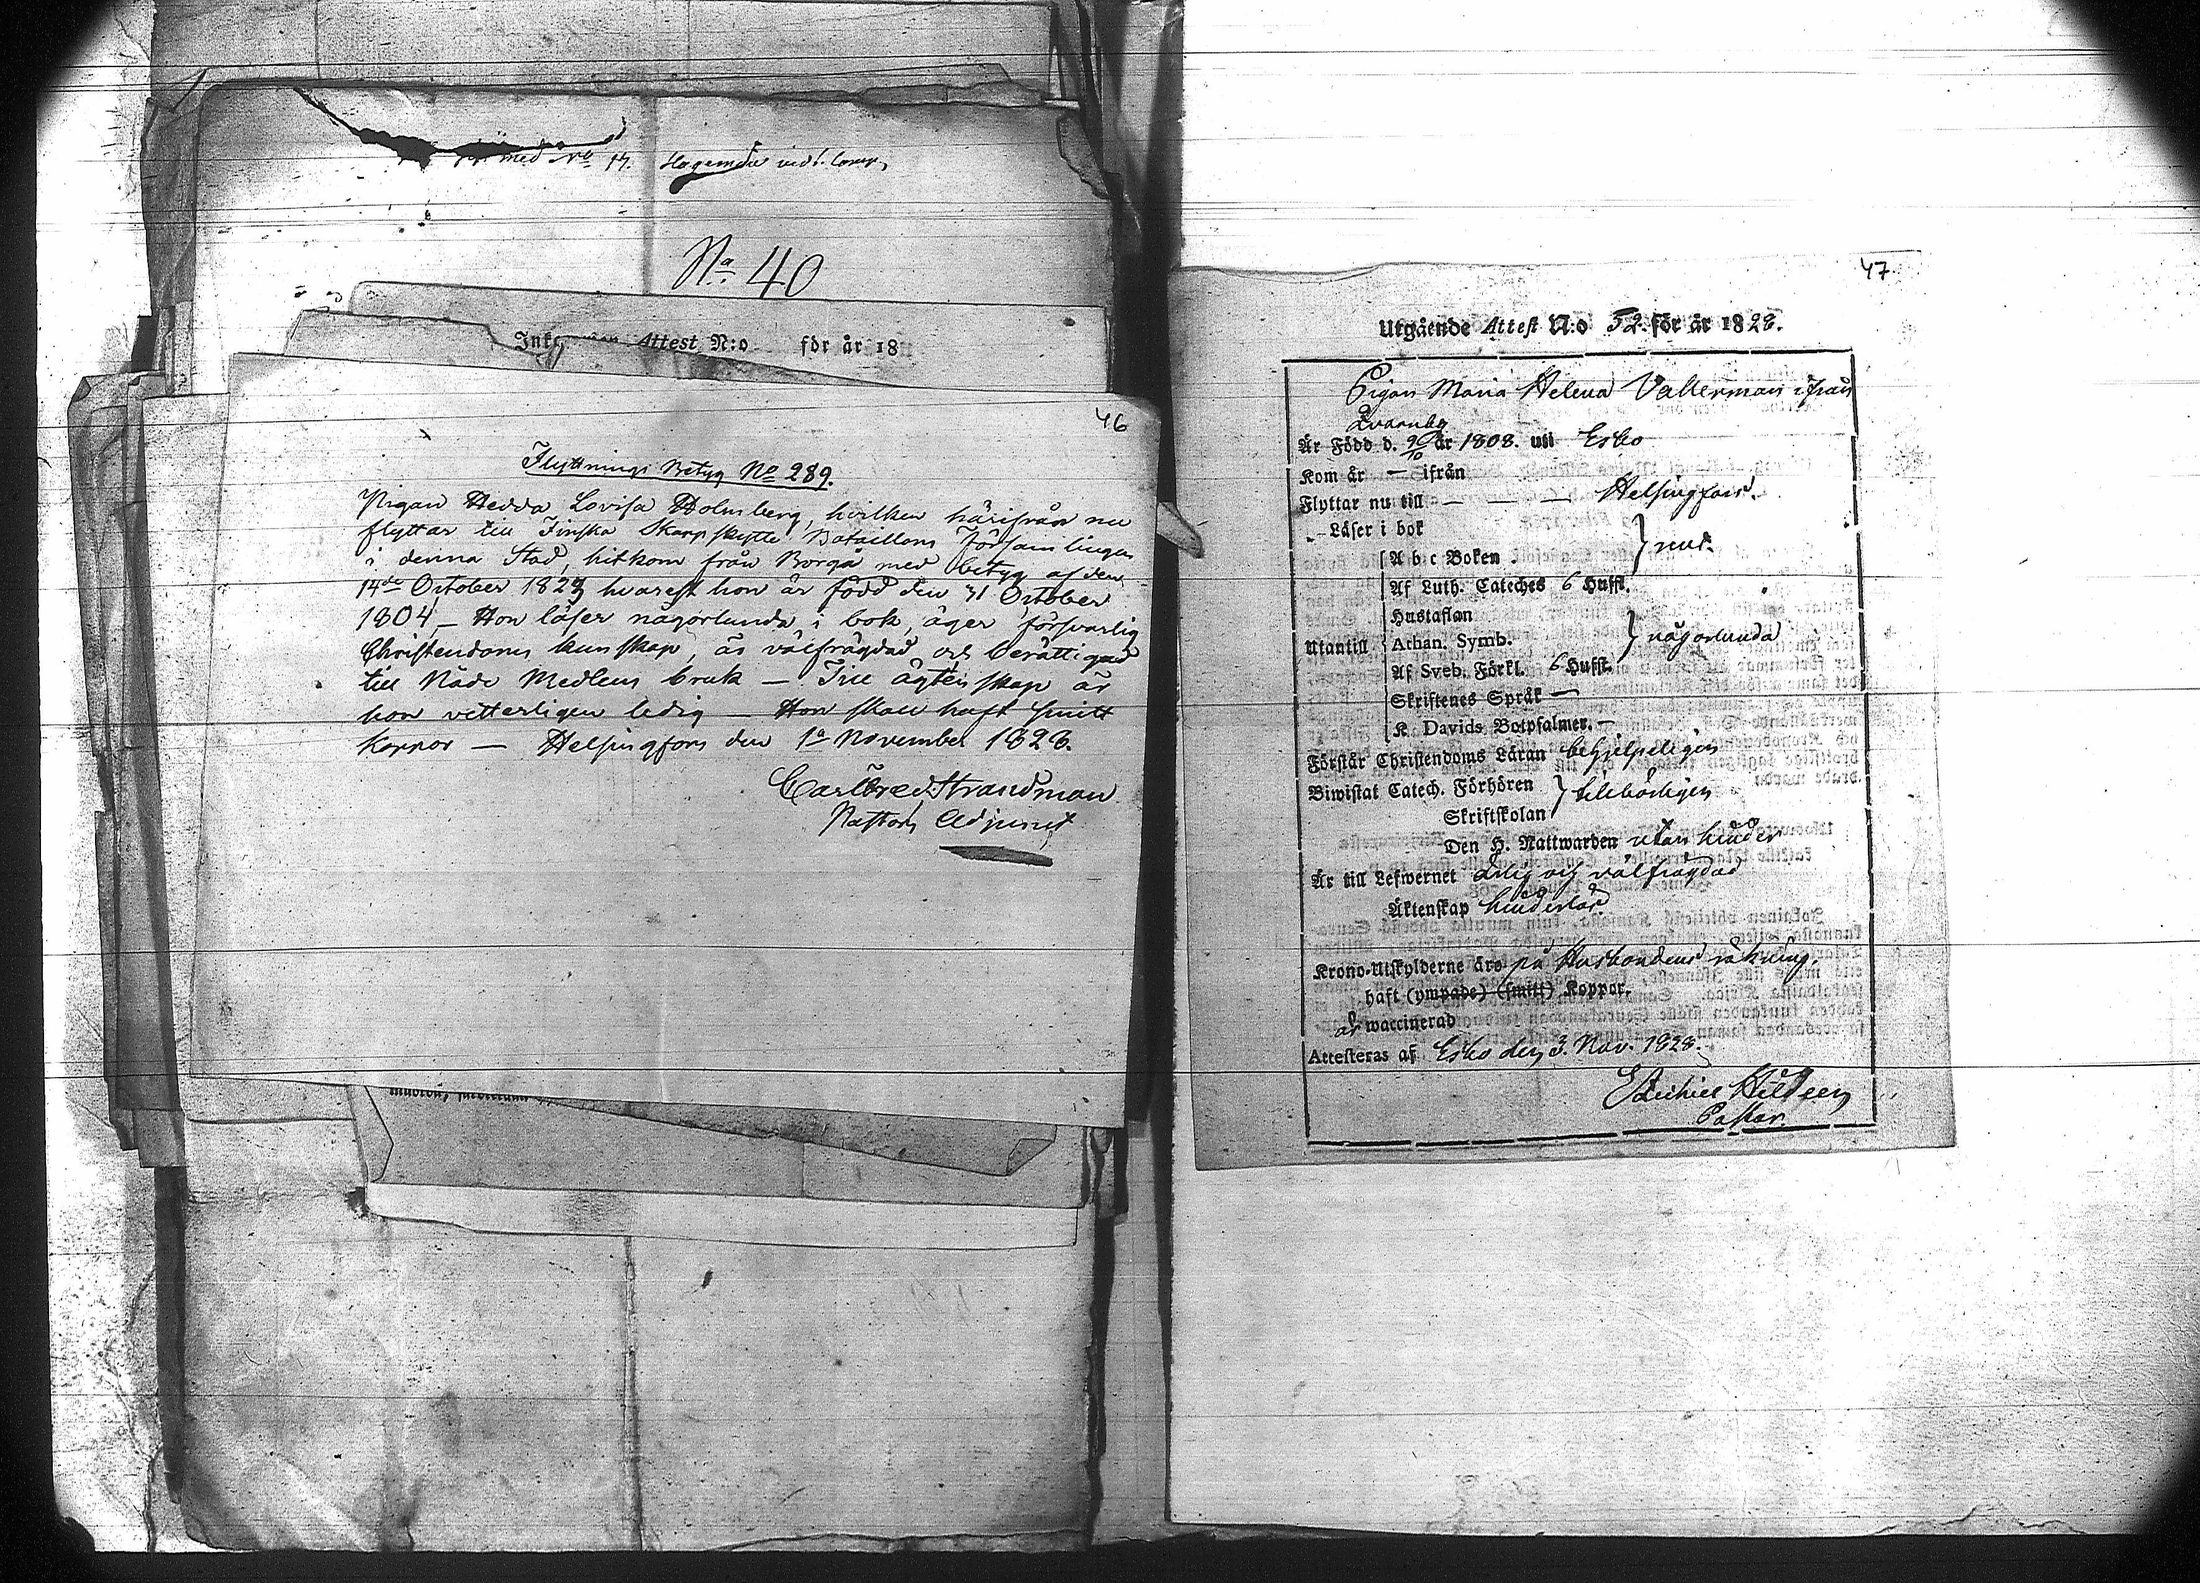 med No 17.
No 40
Attest N:o för år 18
46
Flyttnings Betyg No 289.
Pigan Hedda Lovisa Holmberg, hvilken härifrån nu
flyttar till Finska Skarpskytte Bataillons Församlingen
i denna Stad, hitkom från Borgå med betyg af den
14de October 1823 hvarest hon är född den 31 October
1804 – Hon läser någorlunda i bok, äger försvarlig
Christendoms kunskap, är välfrägdad och berättigad
till Nåde Medlens bruk – Till ägtenskap är
hon vetterligen ledig – Hon skall haft smitt
koppor – Helsingfors den 1a November 1828.
Carl Fred. Strandman
Pastors Adjunct
47
Utgående Attest N:o 52 för år 1828.
Pigan Maria Helena Vallerman ifrån
Qvarnby
Är Född d. 9/10 år 1808. uti Esbo
Kom år — ifrån
Flyttar nu till — — — Helsingfors.
Läser i bok
A b c Boken
Af Luth. Cateches 6 Hufst.
Hustaflan
Utantill Athan. Symb. någorlunda
Af Sveb. Förkl. 6 Hufst.
Skriftenes Språk —
K. Davids Botpsalmer. —
Förstår Christendoms Läran behjelpeligen
Biwistat Catech. Förhören tillbörligen
Skriftskolan
Den H. Nattwarden utan hinder
Är till Lefwernet ärlig och välfrägdad
Äktenskap hinderlös
Krono-Utskylderne äro på Husbondens räkning.
haft (ympade) (smitt) Koppor.
är waccinerad
Attesteras af Esbo den 3. Nov. 1828.
Pastor.